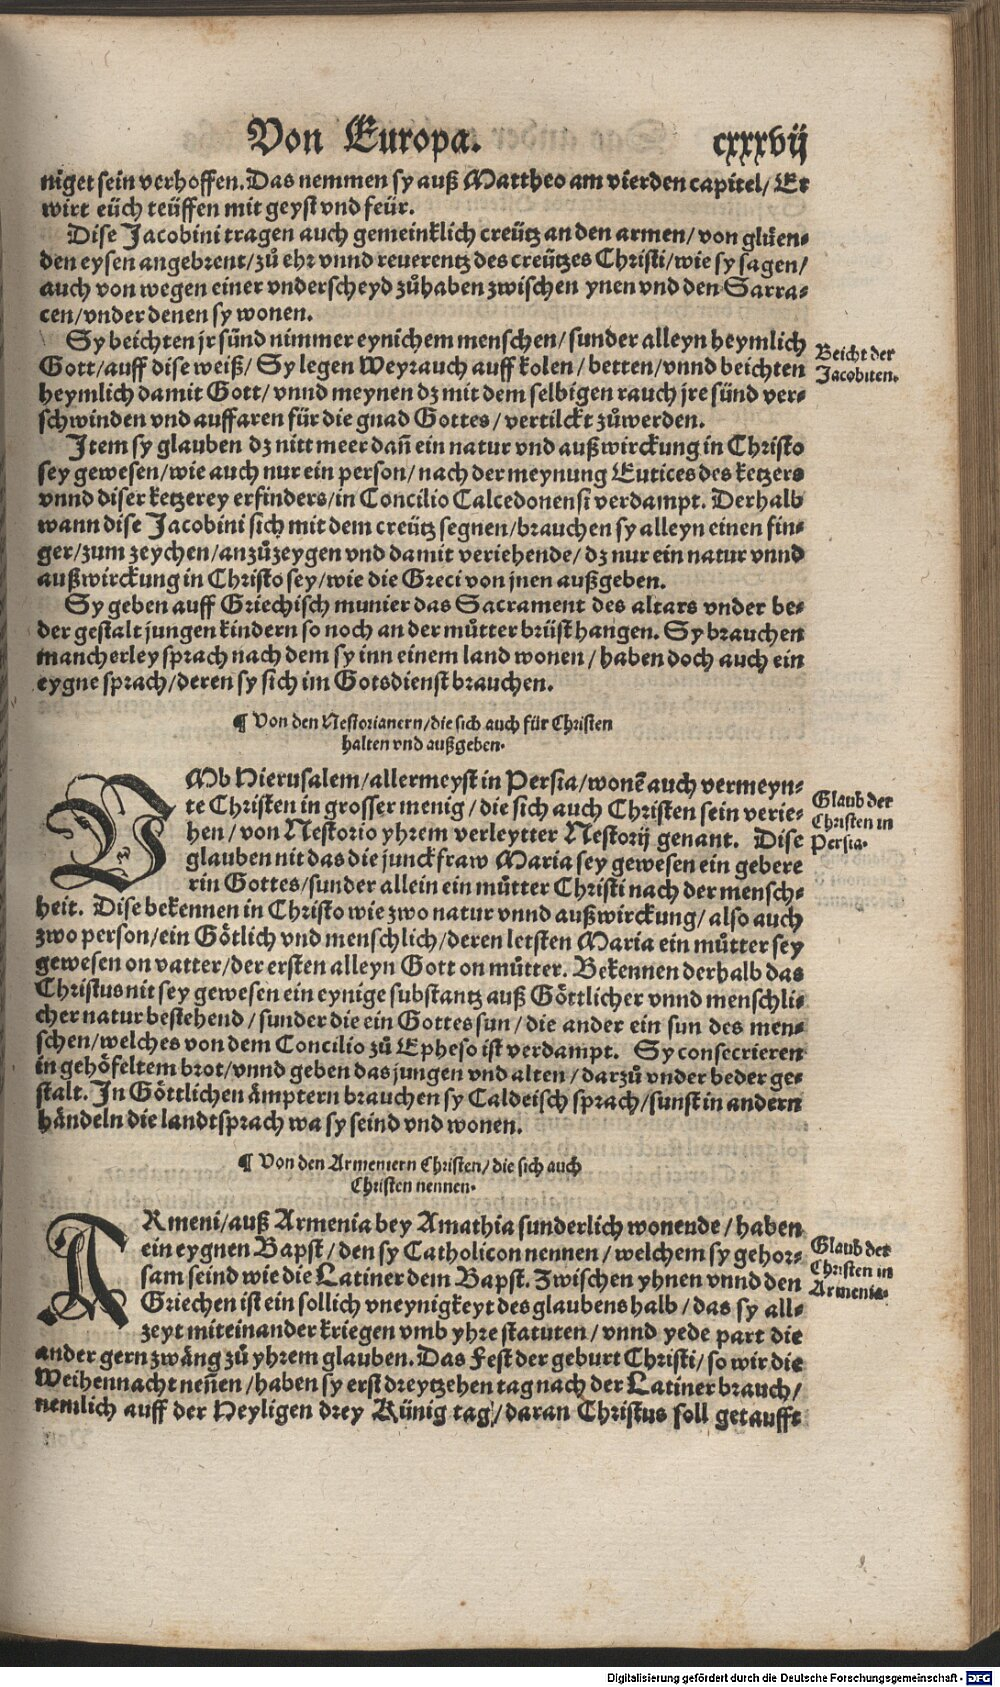 Von Europa. cxxxvij
niget sein verhoffen. Das nemmen sy auß Mattheo am vierden capitel/ Er
wirt eüch teüffen mit geyst vnd feür.
Dise Jacobini tragen auch gemeinklich creütz an den armen/ von glüen⸗
den eysen angebrent/ zů ehr vnnd reuerentz des creützes Christi/ wie sy sagen/
auch von wegen einer vnderscheyd zůhaben zwischen ynen vnd den Sarra⸗
cen/ vnder denen sy wonen.
Sy beichten jr sünd nimmer eynichem menschen/ sunder alleyn heymlich
Gott/ auff dise weiß/ Sy legen Weyrauch auff kolen/ betten/ vnnd beichten
heymlich damit Gott/ vnnd meynen dz mit dem selbigen rauch jre sünd ver⸗
schwinden vnd auffaren für die gnad Gottes/ vertilckt zůwerden.
Beicht der
Jacobiten.
Item sy glauben dz nitt meer dañ ein natur vnd außwirckung in Christo
sey gewesen/ wie auch nur ein person/ nach der meynung Eutices des ketzers
vnnd diser ketzerey erfinders/ in Concilio Calcedonensi verdampt. Derhalb
wann dise Jacobini sich mit dem creütz segnen/ brauchen sy alleyn einen fin⸗
ger/ zum zeychen/ anzůzeygen vnd damit veriehende/ dz nur ein natur vnnd
außwirckung in Christo sey/ wie die Greci von jnen außgeben.
Sy geben auff Griechisch munier das Sacrament des altars vnder be⸗
der gestalt jungen kindern so noch an der můtter brüst hangen. Sy brauchen
mancherley sprach nach dem sy inn einem land wonen/ haben doch auch ein
eygne sprach/ deren sy sich im Gotsdienst brauchen.
¶ Von den Nestorianern/ die sich auch für Christen
halten vnd außgeben.
VMb Hierusalem/ allermeyst in Persia/ wonẽ auch vermeyn⸗
te Christen in grosser menig/ die sich auch Christen sein verie⸗
hen/ von Nestorio yhrem verleytter Nestorij genant. Dise
glauben nit das die junckfraw Maria sey gewesen ein gebere
rin Gottes/ sunder allein ein můtter Christi nach der mensch⸗
heit. Dise bekennen in Christo wie zwo natur vnnd außwirckung/ also auch
zwo person/ ein Götlich vnd menschlich/ deren letsten Maria ein můtter sey
gewesen on vatter/ der ersten alleyn Gott on můtter. Bekennen derhalb das
Christus nit sey gewesen ein eynige substantz auß Göttlicher vnnd menschli⸗
cher natur bestehend/ sunder die ein Gottes sun/ die ander ein sun des men⸗
schen/ welches von dem Concilio zů Epheso ist verdampt. Sy consecrieren
in gehöfeltem brot/ vnnd geben das jungen vnd alten/ darzů vnder beder ge⸗
stalt. In Göttlichen ämptern brauchen sy Caldeisch sprach/ sunst in andern
händeln die landtsprach wa sy seind vnd wonen.
Glaub der
Christen in
Persia.
¶ Von den Armeniern Christen/ die sich auch
Christen nennen.
ARmeni/ auß Armenia bey Amathia sunderlich wonende/ haben
ein eygnen Bapst/ den sy Catholicon nennen/ welchem sy gehor⸗
sam seind wie die Latiner dem Bapst. Zwischen yhnen vnnd den
Griechen ist ein sollich vneynigkeyt des glaubens halb/ das sy all⸗
zeyt miteinander kriegen vmb yhre statuten/ vnnd yede part die
ander gern zwäng zů yhrem glauben. Das Fest der geburt Christi/ so wir die
Weihennacht neñen/ haben sy erst dreytzehen tag nach der Latiner brauch/
nemlich auff der Heyligen drey Künig tag/ daran Christus soll getaufft
Glaub der
Christen in
Armenia.
Digitalisierung gefördert durch die Deutsche Forschungsgemeinschaft - DFG